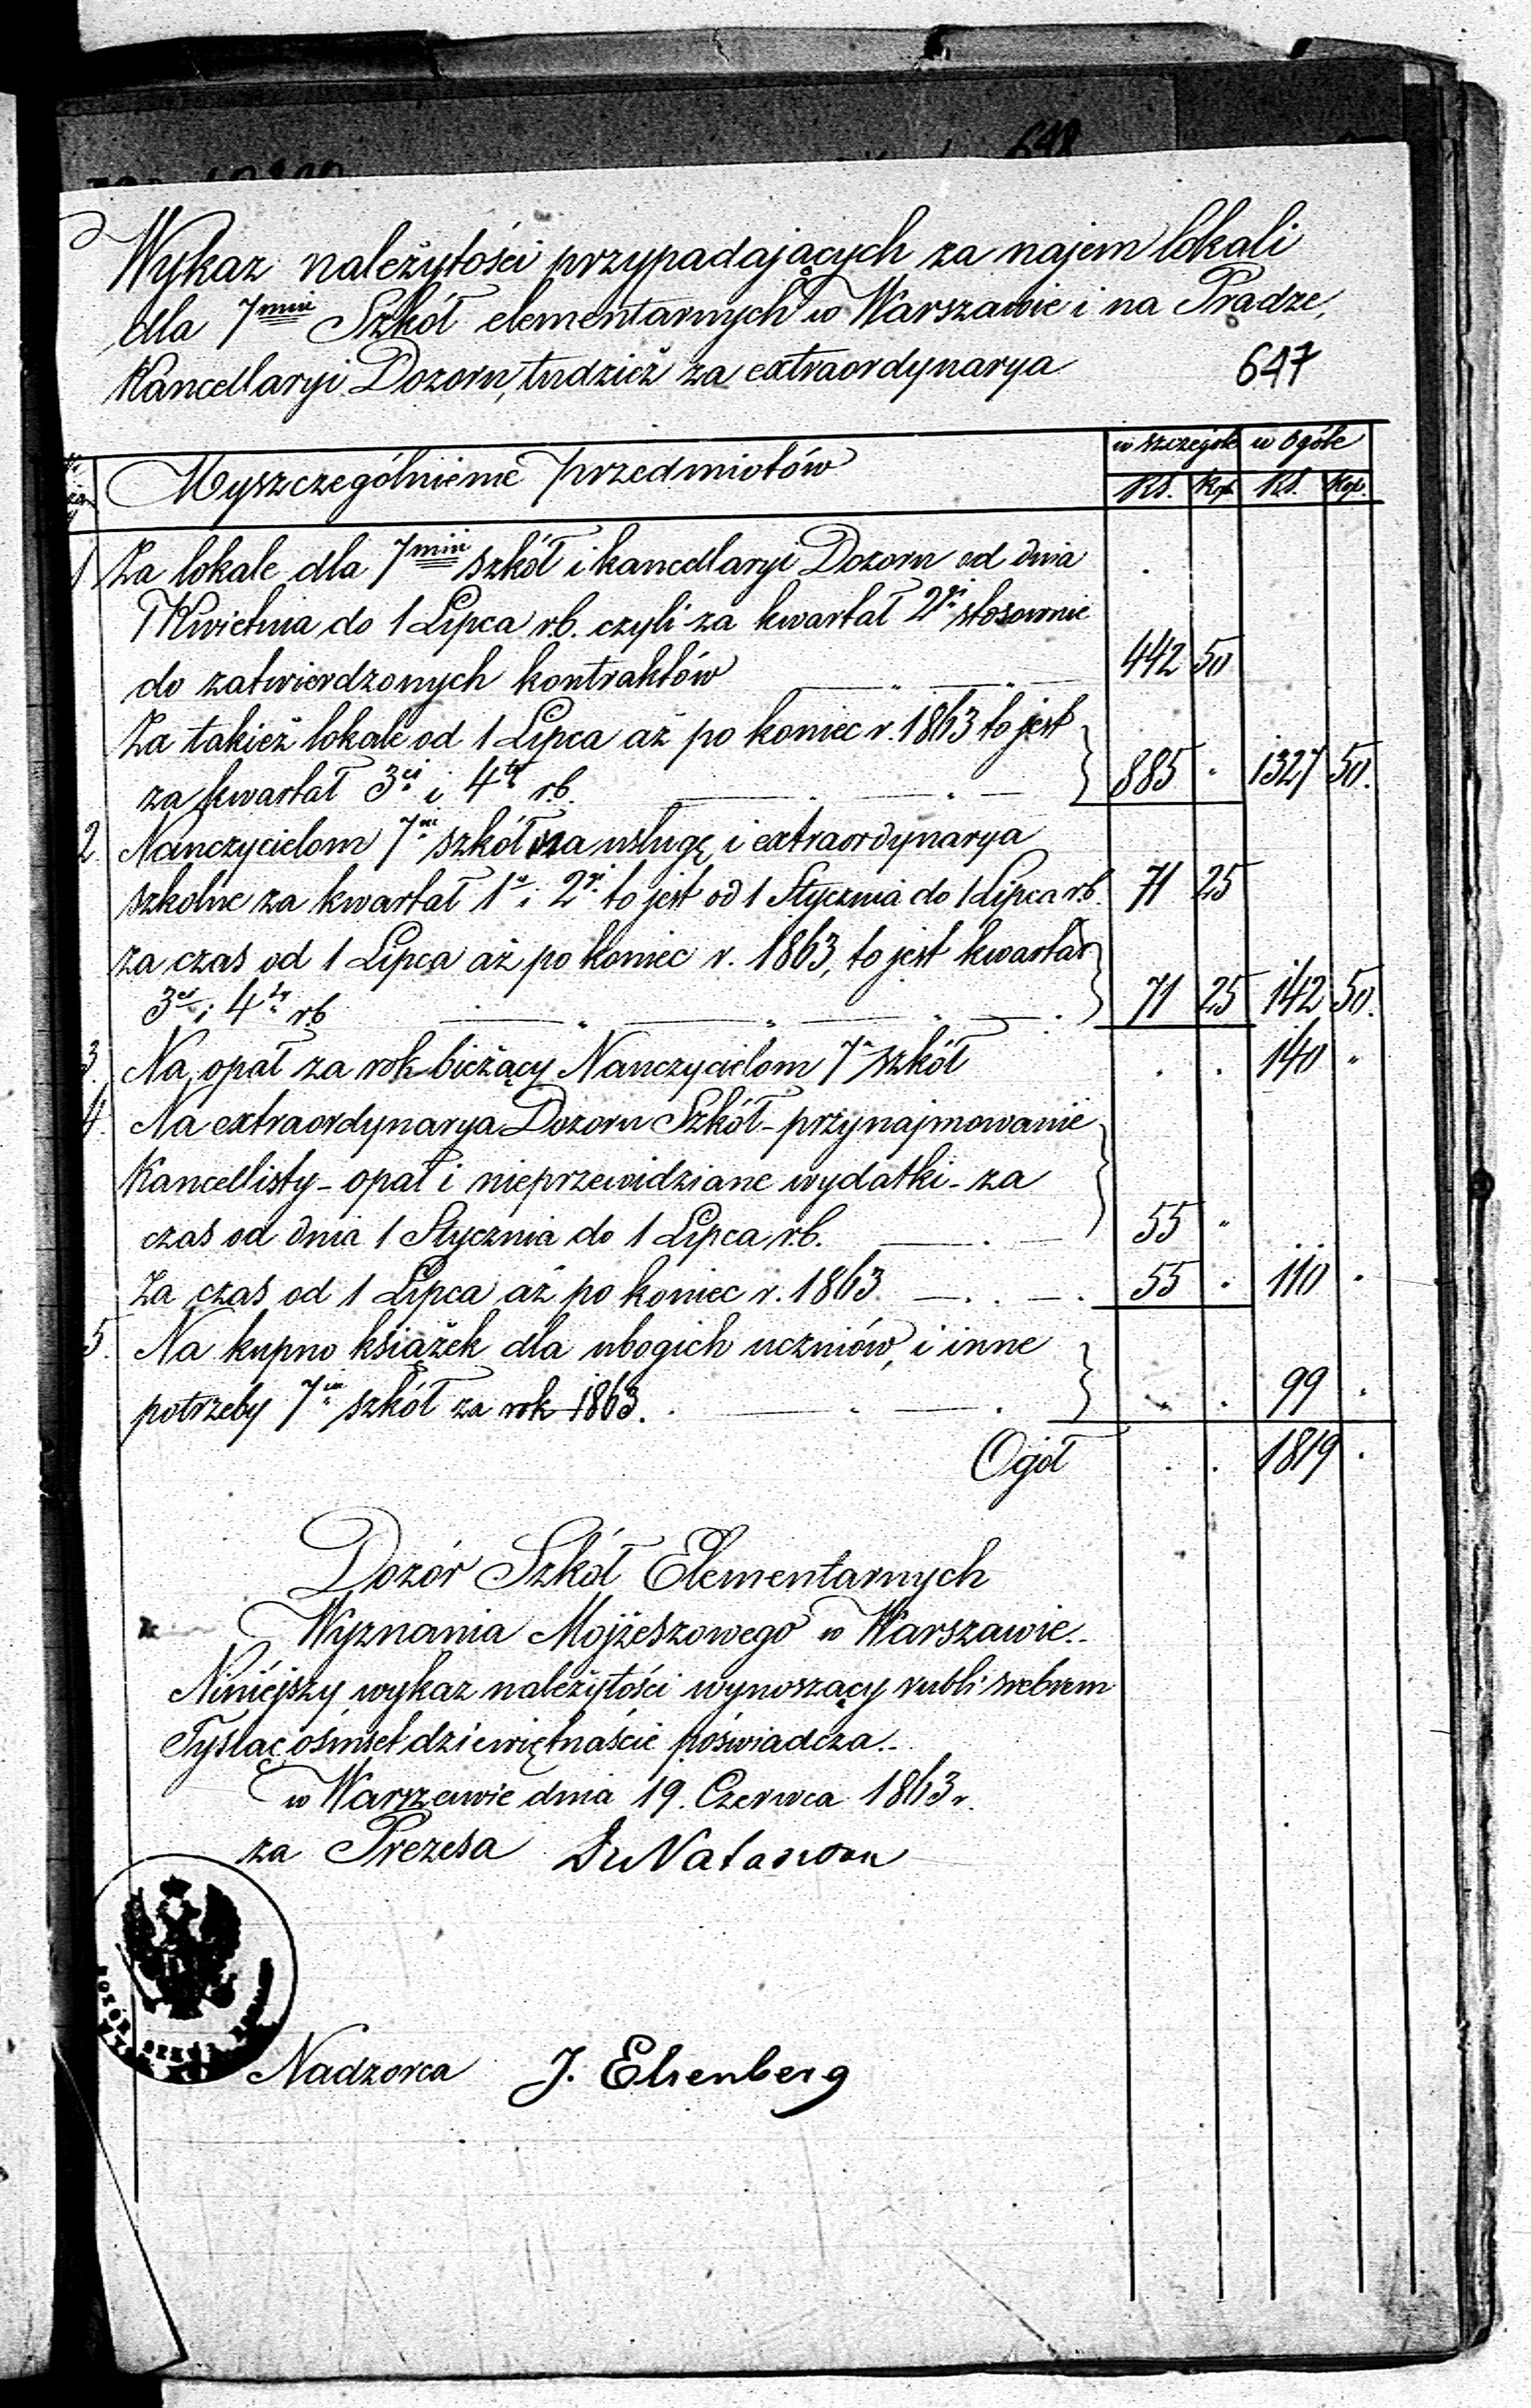 648
Wykaz należytości przypadających za najem lokali
dla 7miu Szkół elementarnych w Warszawie i na Pradze,
Kancellaryi Dozoru, tudzież za extraordynarya
647
Wyszczególnienie przedmiotów w szczególe w ogóle
RS. Kop. RS. Kop.
1 Za lokale dla 7miu szkół i kancellaryi Dozoru od dnia
1 Kwietnia do 1 Lipca r.b. czyli za kwartał 2gi stosownie
do zatwierdzonych kontraktów 442 50
Za takież lokale od 1 Lipca aż po koniec r. 1863 to jest
za kwartał 3ci i 4ty r.b. 885 " 1327 50.
2. Nauczycielom 7miu szkół na usługę i extraordynarya
szkolne za kwartał 1y i 2gi to jest od 1 Stycznia do 1 Lipca r.b. 71 25
za czas od 1 Lipca aż po koniec r. 1863, to jest kwartał
3ci i 4ty r.b. 71 25 142 50.
3. Na opał za rok bieżący Nauczycielom 7u szkół 140 "
4. Na extraordynarya Dozoru Szkół - przynajmowanie
Kancellisty - opał i nieprzewidziane wydatki - za
czas od dnia 1 Stycznia do 1 Lipca r.b. 55 "
Za czas od 1 Lipca aż po koniec r. 1863 55 " 110 "
5. Na kupno książek dla ubogich uczniów, i inne
potrzeby 7iu szkół za rok 1863. 99 "
Ogół 1819 "
Dozór Szkół Elementarnych
Wyznania Mojżeszowego w Warszawie.
Niniéjszy wykaz należytości wynoszący rubli srebrem
Tysiąc ośmset dziewiętnaście poświadcza.
w Warszawie dnia 19. Czerwca 1863 r.
za Prezesa Dr Natanson
DOZÓR SZKÓŁ
Nadzorca J. Elsenberg